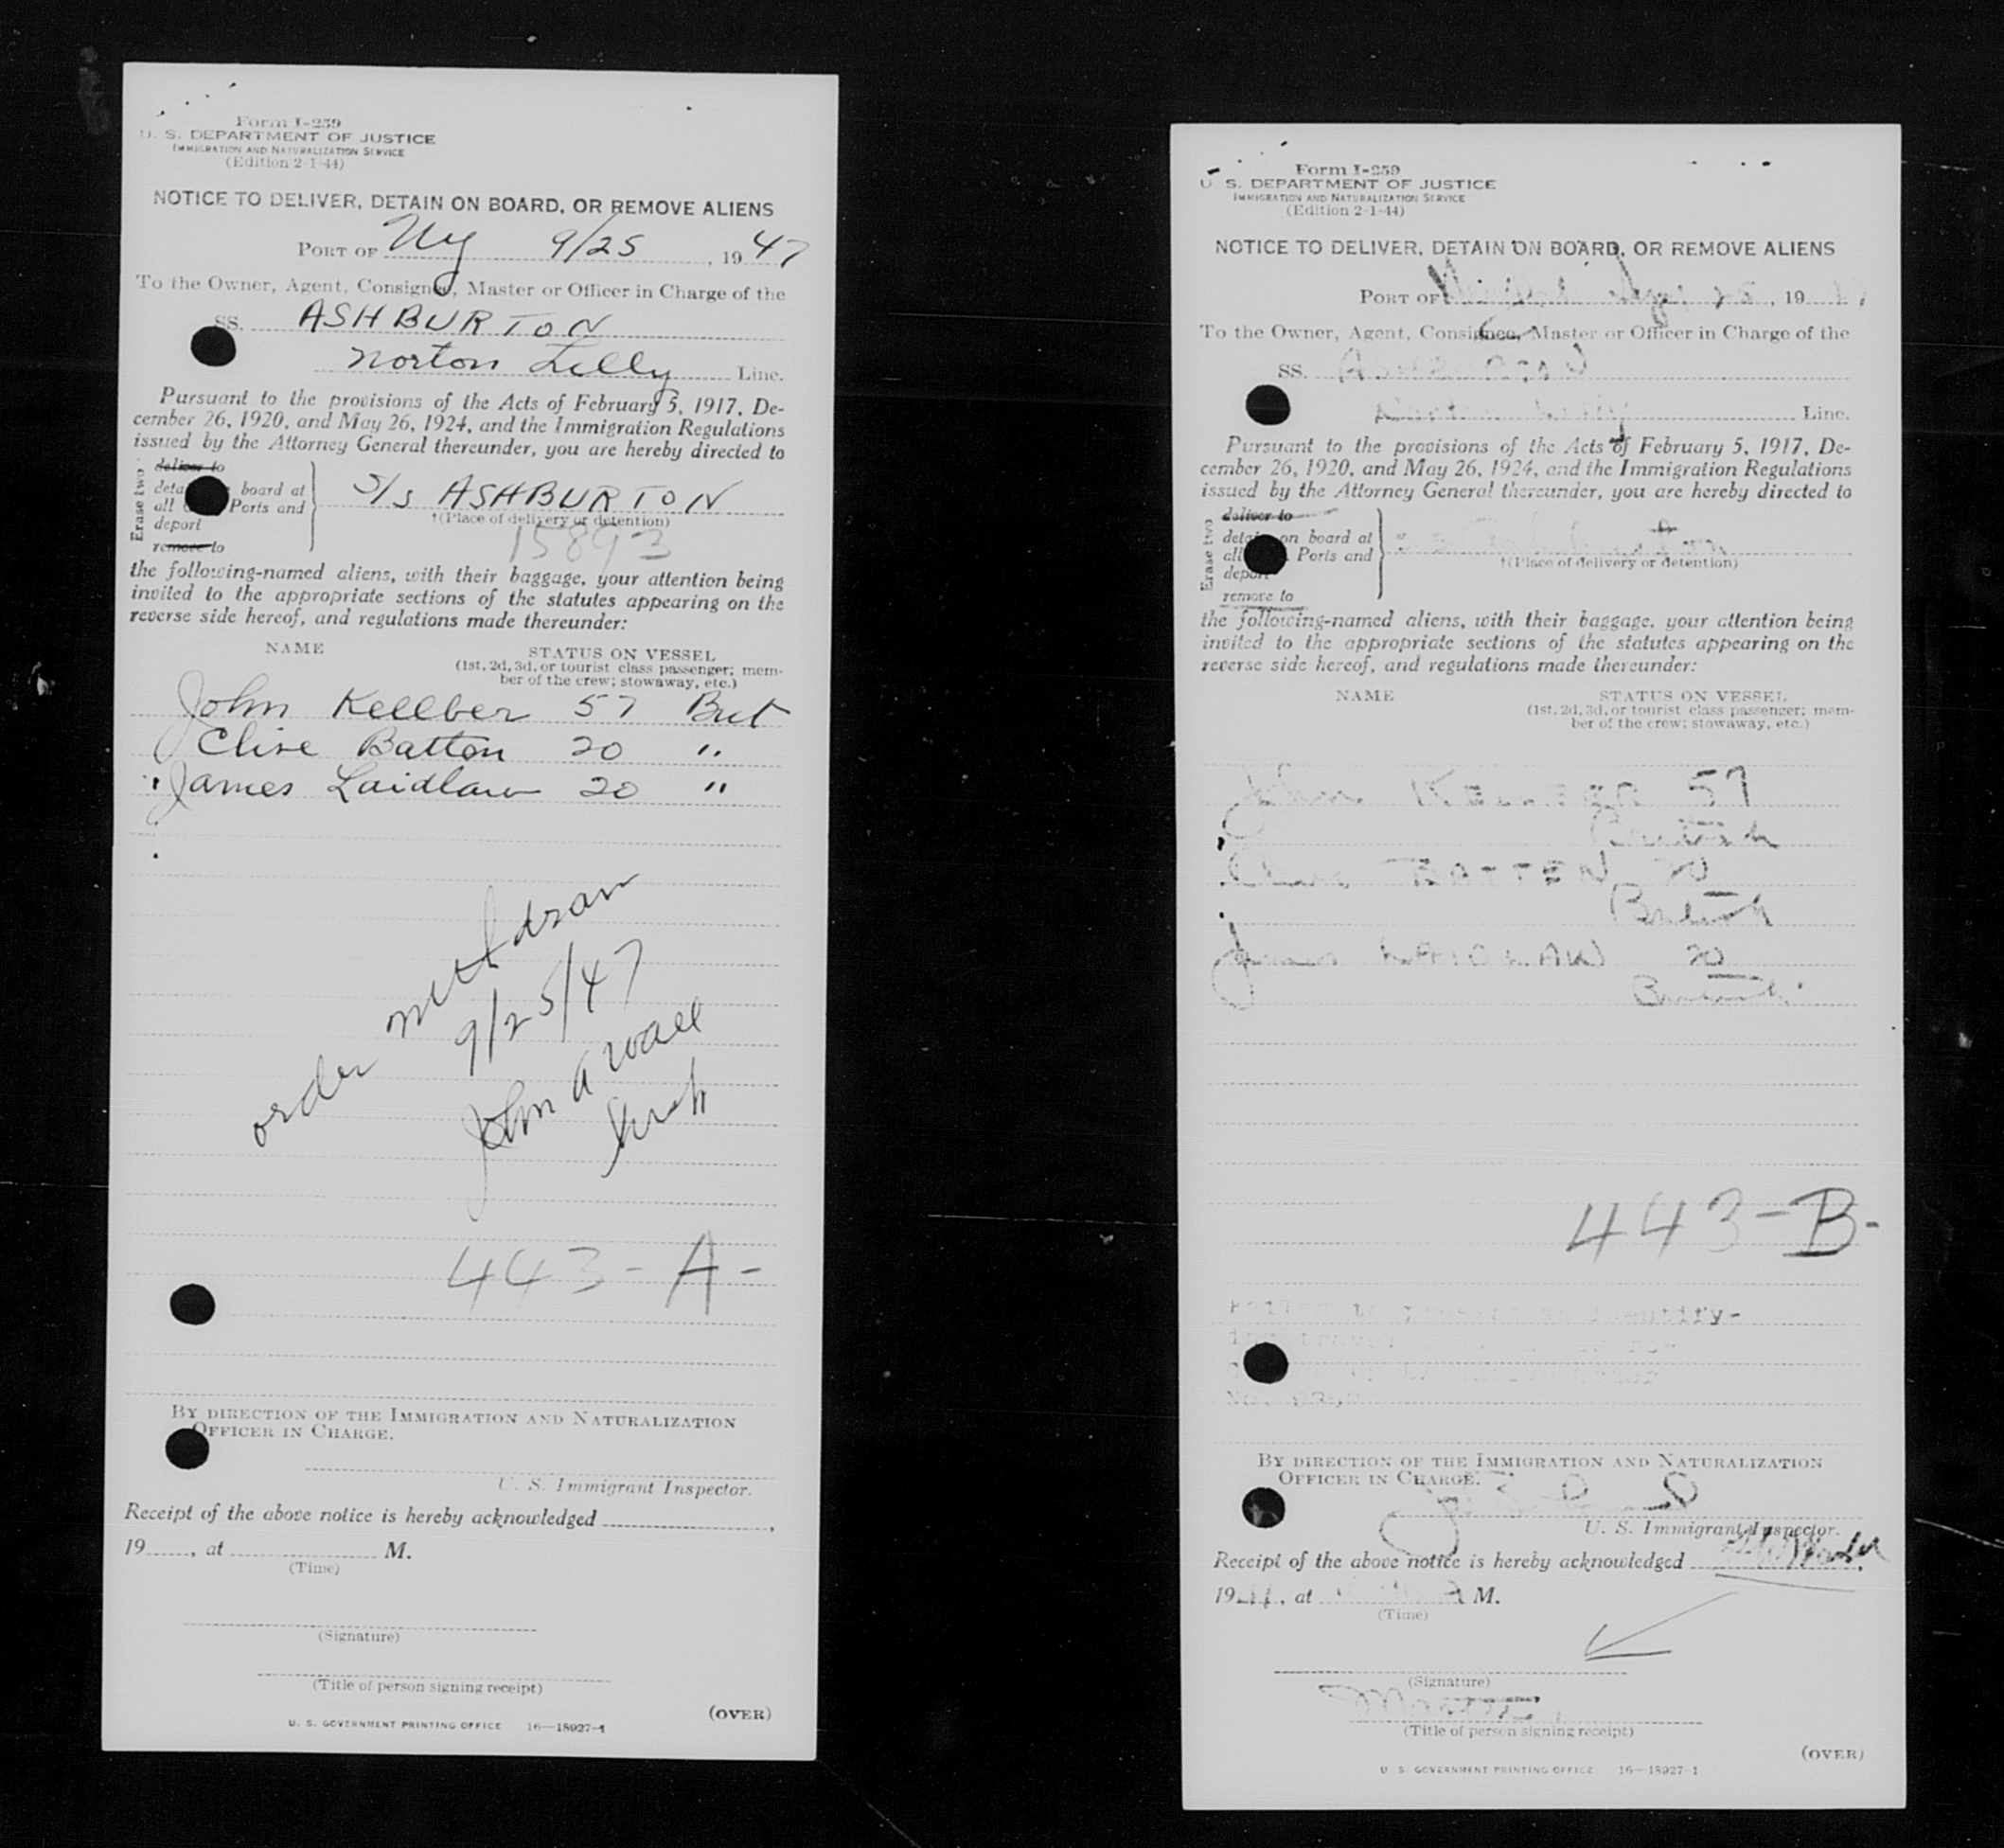 Form I-259
U. S. DEPARTMENT OF JUSTICE
IMMIGRATION AND NATURALIZATION SERVICE
(Edition 2-1-44)
NOTICE TO DELIVER, DETAIN ON BOARD, OR REMOVE ALIENS
PORT OF Ny 9/25, 1947
To the Owner, Agent, Consignee, Master or Officer in Charge of the
SS. ASHBURTON
Norton Lilly Line.
Pursuant to the provisions of the Acts of February 5, 1917, De-
cember 26, 1920, and May 26, 1924, and the Immigration Regulations
issued by the Attorney General thereunder, you are hereby directed to
Erase two
deliver to
board at
all Ports and
deport
remove to
S/S ASHBURTON
†(Place of delivery or detention)
15893
the following-named aliens, with their baggage, your attention being
invited to the appropriate sections of the statutes appearing on the
reverse side hereof, and regulations made thereunder:
NAME STATUS ON VESSEL
(1st, 2d, 3d, or tourist class passenger; mem-
ber of the crew; stowaway, etc.)
John Kellber 57 Brit
Clive Batton 20 "
James Laidlaw 20 "
order
9/25/47
John A Wall
443-A-
BY DIRECTION OF THE IMMIGRATION AND NATURALIZATION
OFFICER IN CHARGE.
U. S. Immigrant Inspector.
Receipt of the above notice is hereby acknowledged
19, at M.
(Time)
(Signature)
(Title of person signing receipt)
(OVER)
U. S. GOVERNMENT PRINTING OFFICE 16—18927-1
Form I-259
U. S. DEPARTMENT OF JUSTICE
IMMIGRATION AND NATURALIZATION SERVICE
(Edition 2-1-44)
NOTICE TO DELIVER, DETAIN ON BOARD, OR REMOVE ALIENS
PORT OF , 19
To the Owner, Agent, Consignee, Master or Officer in Charge of the
SS.
Line.
Pursuant to the provisions of the Acts of February 5, 1917, De-
cember 26, 1920, and May 26, 1924, and the Immigration Regulations
issued by the Attorney General thereunder, you are hereby directed to
Erase two
deliver to
on board at
all Ports and
deport
remove to
†(Place of delivery or detention)
the following-named aliens, with their baggage, your attention being
invited to the appropriate sections of the statutes appearing on the
reverse side hereof, and regulations made thereunder:
NAME STATUS ON VESSEL
(1st, 2d, 3d, or tourist class passenger; mem-
ber of the crew; stowaway, etc.)
John 57
British
BATTEN 20
British
James LAIDLAW 20
British
443-B-
BY DIRECTION OF THE IMMIGRATION AND NATURALIZATION
OFFICER IN CHARGE.
U. S. Immigrant Inspector.
Receipt of the above notice is hereby acknowledged
19, at M.
(Time)
(Signature)
(Title of person signing receipt)
(OVER)
U. S. GOVERNMENT PRINTING OFFICE 16—18927-1